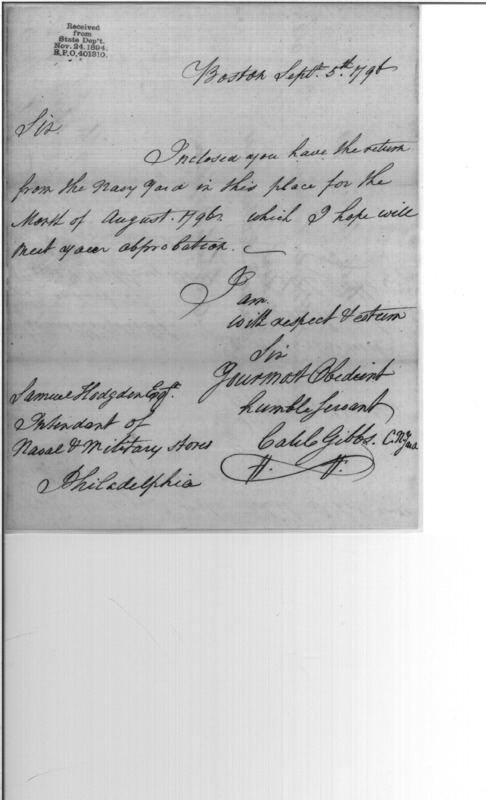 Received
from
State Dep't.
Nov. 24. 1894.
R.P.O. 401310.
Boston Septr. 5th. 1796
Sir.
Inclosed you have the return
from the Navy Yard in this place for the
Month of August. 1796. which I hope will
meet your abprobation.
I am.
with respect & esteem
Sir
Your most Obedient
humble Servant
Caleb Gibbs. C.N.Yard
Samuel Hodgdon Esqr.
Intendant of
Naval & Military Stores
Philadelphia